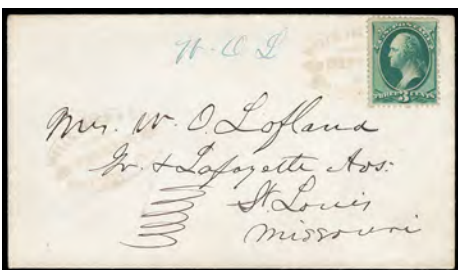 W. O. L
Mrs. W. O. Lofland
Gr. & Lafayette Avs:
St. Louis
Missouri
THREE 3 CENTS